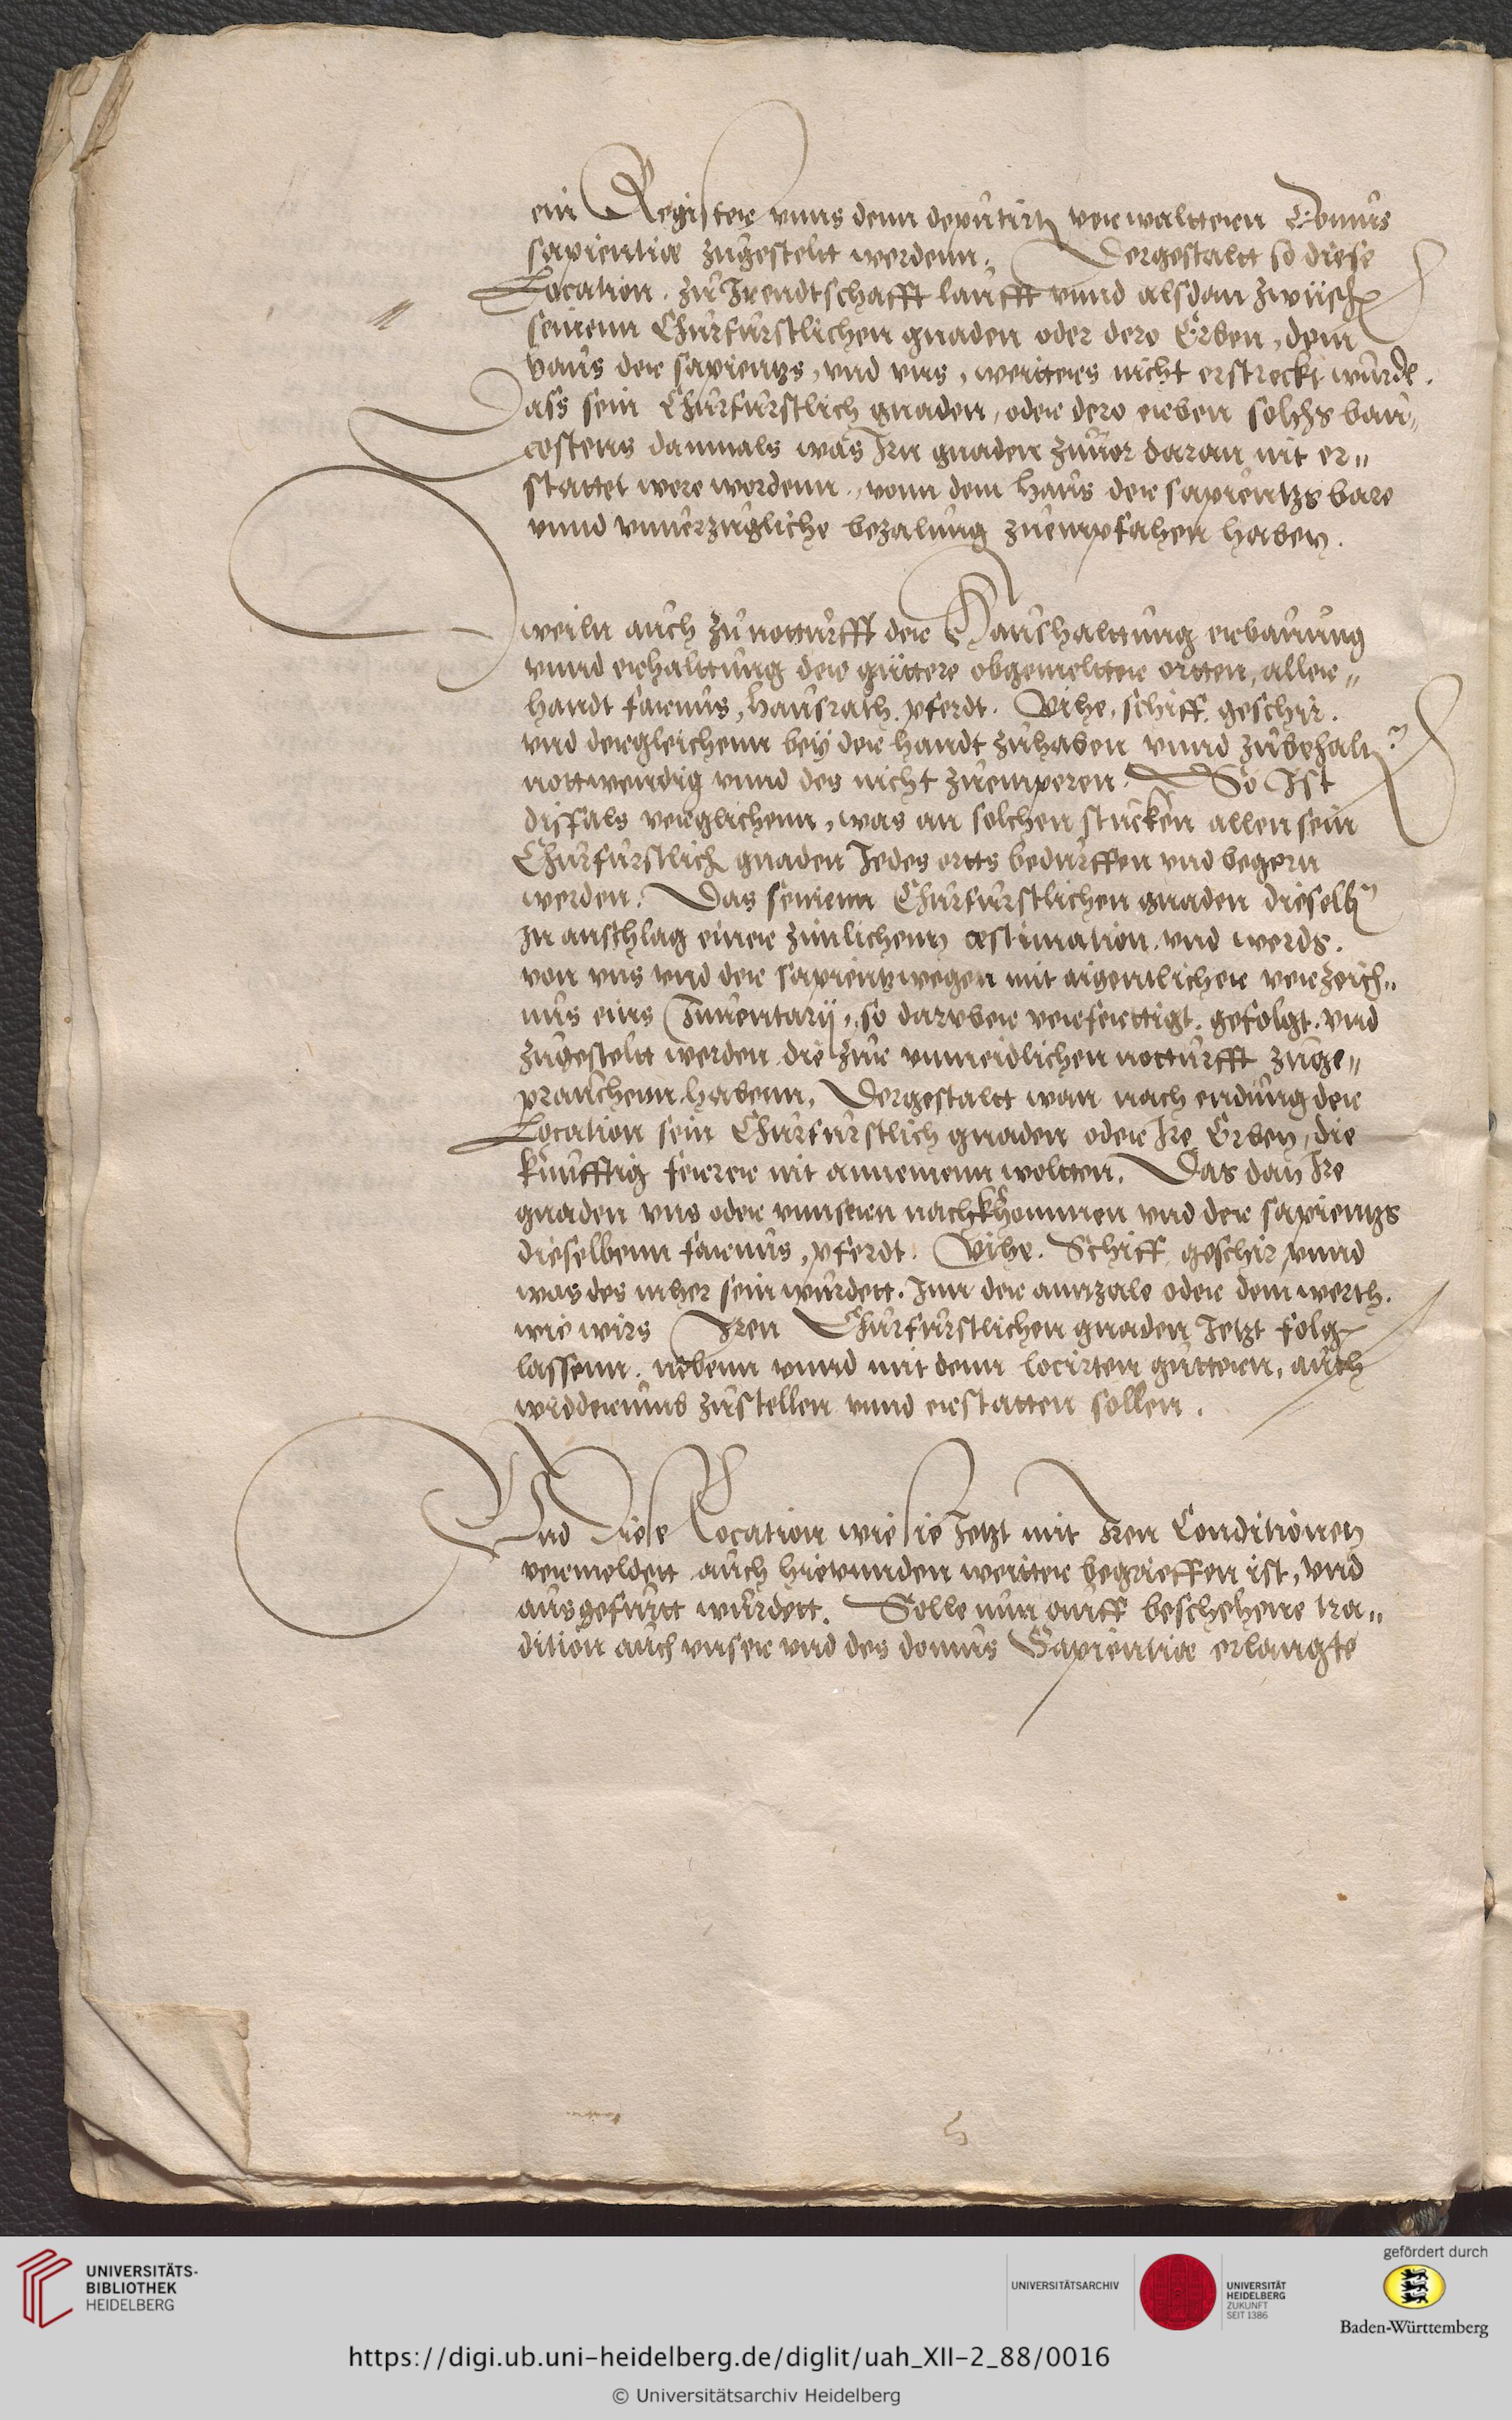 ein Register vnns denn deputirtn verwalttern Domus
sapientiæ zugestelt werdenn. Dergestaltt so diese
Location. zu Irendtschafft laufft vnnd alsdan zwüschn
seinenn Churfurstlichen gnaden oder dero Erben, dem
haus der sapientzs, vnd vns, weitters nicht erstreckt wurde.
Dass sein Churfurstlich gnaden, oder dero erben solchs bau„
costens danmals was Irn gnaden zuuor daran nit er„
stattet were wordenn, vonn dem haus der sapientzs bare
vnnd vnuerzugliche bezalung zuempfahen haben.
Dweiln auch zu notturfft der Haushalttung erbauung
vnnd erhalttung der güttere obgemeltter ortten, aller„
handt farnus, hausrath. pferdt. Vihe, schiff. geschir.
vnd dergleichenn bey der handt zuhaben vnnd zubehaltn
nottwendig vnnd des nicht zuemperen. So Ist
disfals verglichenn, was an solchen stucken allen sein
Churfurstlich gnaden Iedes ortts bedurffen vnd begern
werden. Das seinenn Churfurstlichen gnaden dieselbn
In anschlag einer zimlichenn æstimation. vnd werds.
von vns vnd der sapientz wegen mit aigentlicher verzeich„
nus eins Inuentarii, so daruber verferttigt. gefolgt. vnd
zugestelt werden die zur vnmeidlichen notturfft zuge„
prauchenn habenn, Dergestaltt wan nach endung der
Location sein Churfurstlich gnaden oder Ire Erben, die
kunfftig ferrer nit annemenn woltten. Das dan Ire
gnaden vns oder vnnsern nachkhommen vnd der sapientzs
dieselbenn farnus, pferdt. Vihe. Schiff, geschir vnnd
was des meher sein wurdett. Inn der anzale oder dem werth.
wie wirs Iren Churfurstlichen gnaden Jetzt folgn
lassenn. nebenn vnnd mit denn locirten güttern, auch
widderumb zustellen vnnd erstatten sollen.
Vnd diese Location wie sie Jetzt mit Iren Conditionen
vermeldett auch hieunnden weitter begrieffen ist, vnd
ausgefurtt wurdett. Solle nun auff beschehene tra„
dition auch vnser vnd des domus Sapientiæ erlangte
UNIVERSITÄTS-
BIBLIOTHEK
HEIDELBERG
UNIVERSITÄTSARCHIV
UNIVERSITÄT
HEIDELBERG
ZUKUNFT
SEIT 1386
gefördert durch
Baden-Württemberg
https://digi.ub.uni-heidelberg.de/diglit/uah_XII-2_88/0016
© Universitätsarchiv Heidelberg